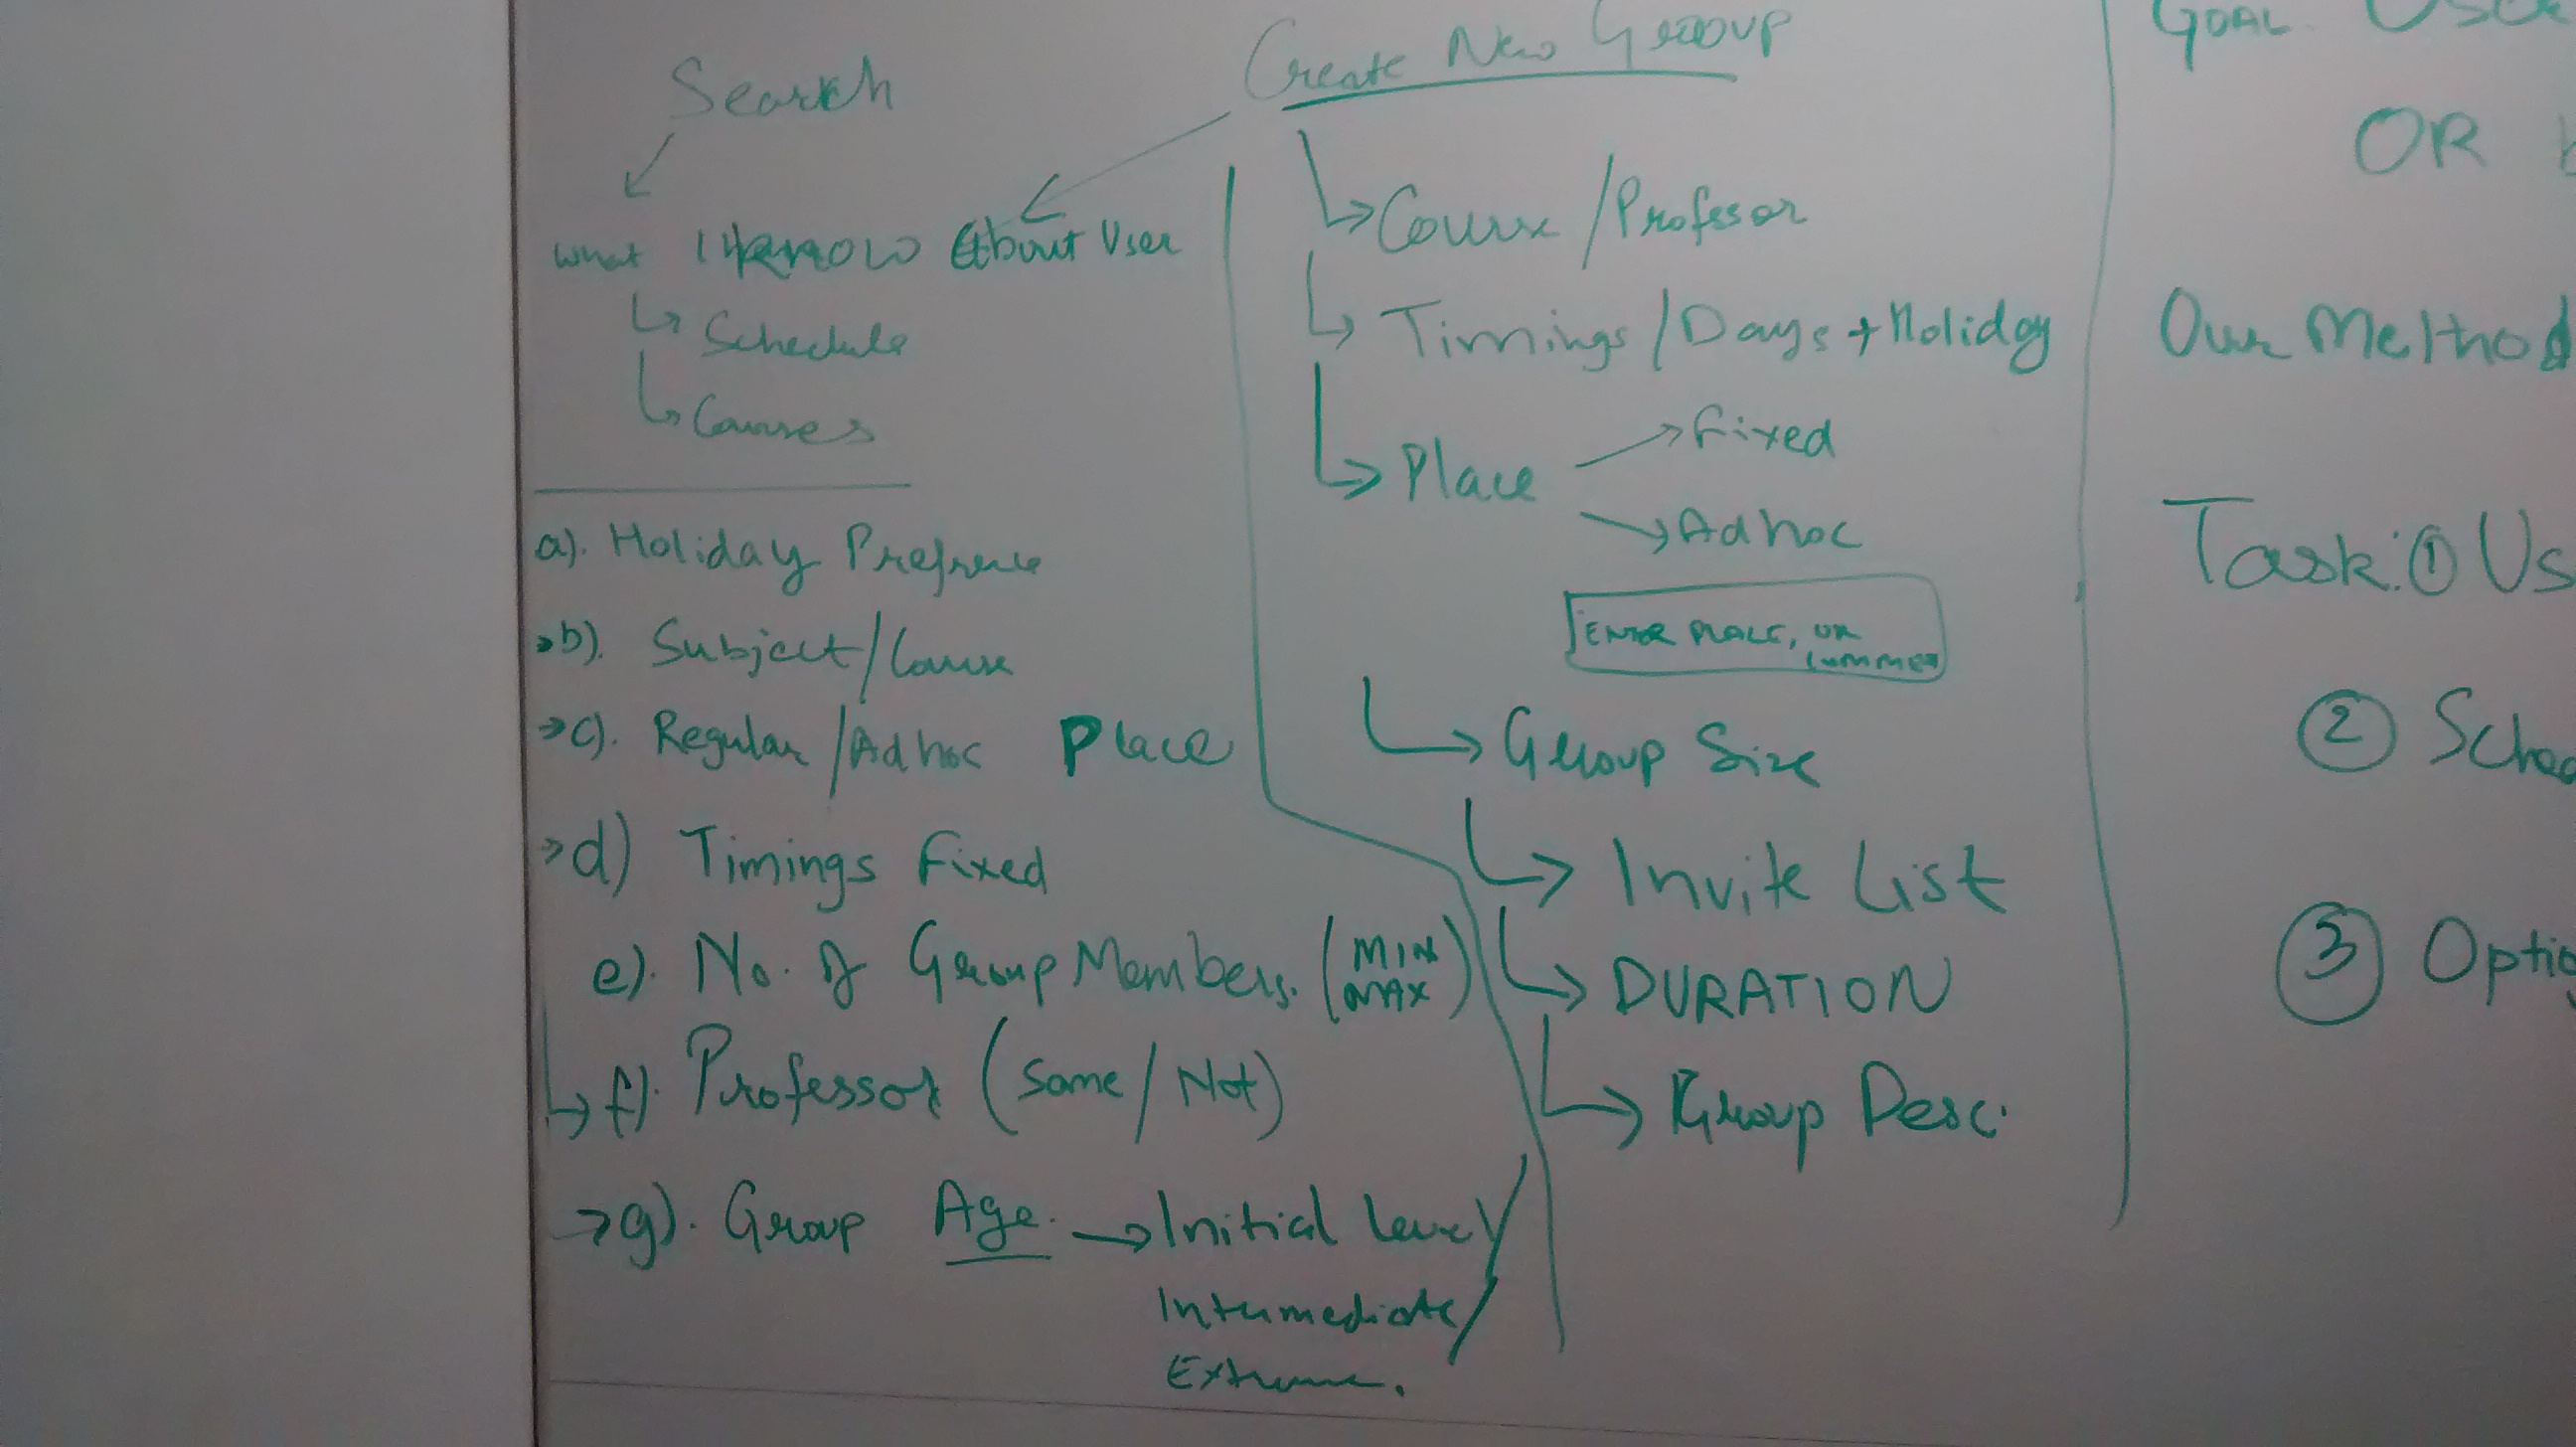 Search
what I know About User
Schedule
Courses
a). Holiday Prefrence
b). Subject/Course
c). Regular/Adhoc Place
d) Timings Fixed
e). No. of Group Members. (MIN MAX)
f). Professor (Same/Not)
g). Group Age. → Initial level/
Intermediate/
Extreme.
Create New Group
Course/Profesor
Timings/Days + Holiday
Place
Fixed
Adhoc
ENTER PLACE, OR
Group Size
Invite List
DURATION
Group Desc.
GOAL
OR
Our Method
Task: ① Us
② Sched
③ Optio